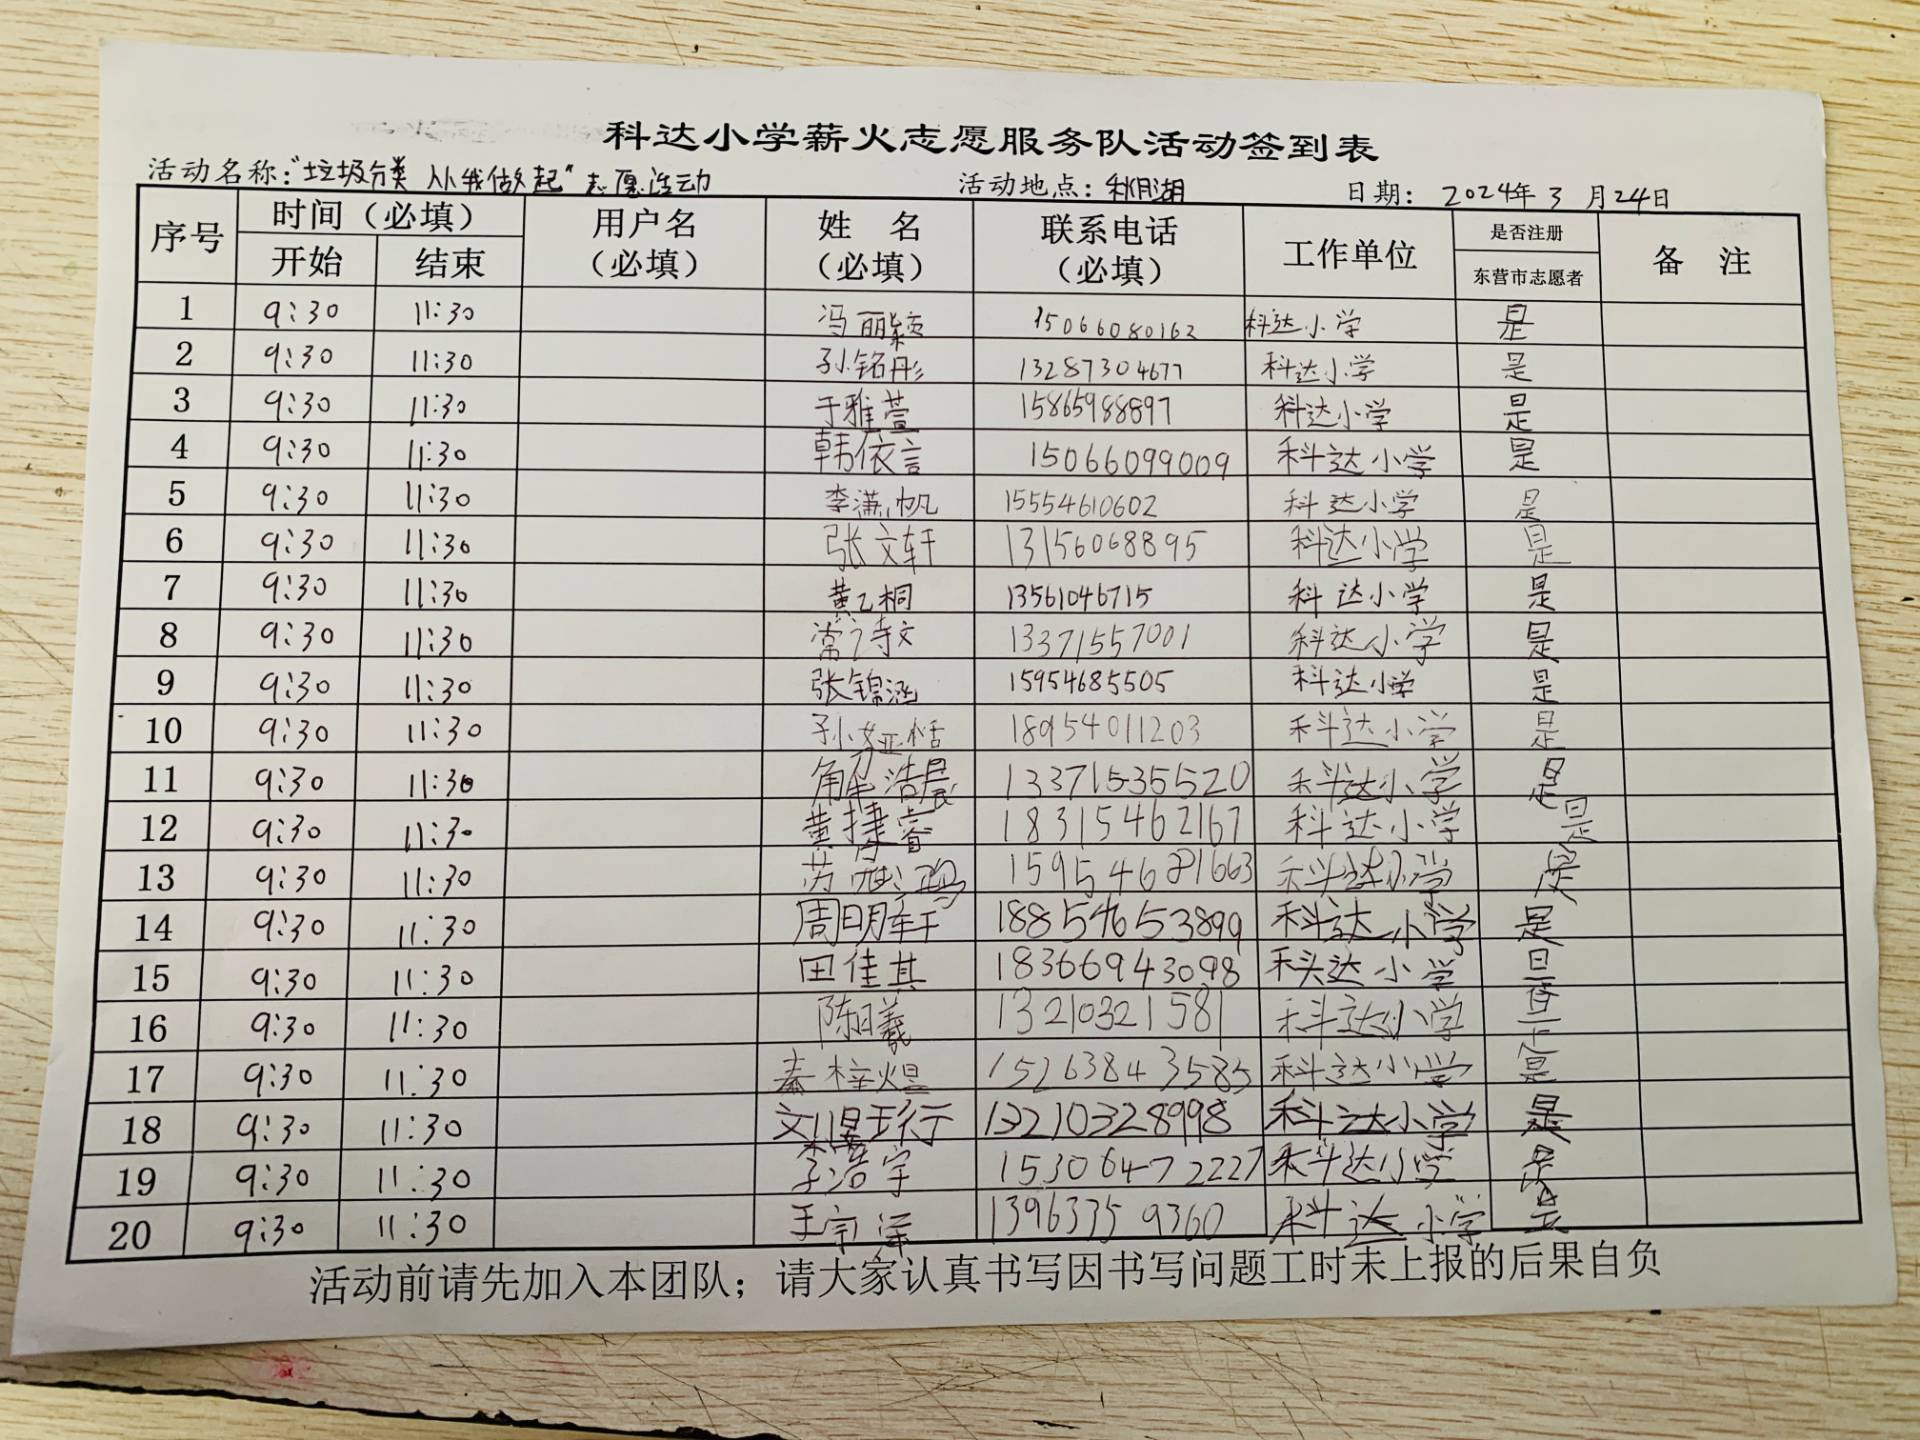 科达小学薪火志愿服务队活动签到表
活动名称:"垃圾分类 从我做起"志愿活动 活动地点: 日期: 2024年 3 月24日
序号 时间(必填) 用户名 姓 名 联系电话 工作单位 是否注册 备 注
开始 结束 (必填) (必填) (必填) 东营市志愿者
1 9:30 11:30 冯丽颖 15066080162 科达小学 是
2 9:30 11:30 孙铭彤 13287304677 科达小学 是
3 9:30 11:30 于雅萱 15865988897 科达小学 是
4 9:30 11:30 韩依言 15066099009 科达小学 是
5 9:30 11:30 李潇帆 15554610602 科达小学 是
6 9:30 11:30 张文轩 13156068895 科达小学 是
7 9:30 11:30 黄乙桐 13561046715 科达小学 是
8 9:30 11:30 常诗文 13371557001 科达小学 是
9 9:30 11:30 张锦涵 15954685505 科达小学 是
10 9:30 11:30 孙娅恬 18954011203 科达小学 是
11 9:30 11:30 解浩晨 13371535520 科达小学 是
12 9:30 11:30 黄捷睿 18315462167 科达小学 是
13 9:30 11:30 科达小学 是
14 9:30 11:30 周明轩 18854653899 科达小学 是
15 9:30 11:30 田佳其 18366943098 科达小学 是
16 9:30 11:30 陈曦 13210321581 科达小学
17 9:30 11:30 秦梓煜 15263843585 科达小学 是
18 9:30 11:30 13210328998 科达小学 是
19 9:30 11:30 李浩宇 15306472227 科达小学 是
20 9:30 11:30 王宇泽 13963359360 科达小学 是
活动前请先加入本团队；请大家认真书写因书写问题工时未上报的后果自负